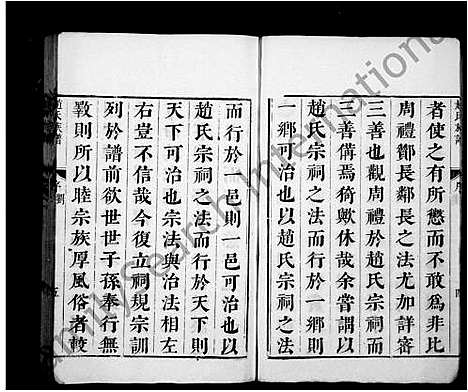 者使之有所懲而不敢為非比
周禮酇長鄙長之法尤加詳審
三善也觀周禮於趙氏宗祠而
三善備焉猗歟休哉余嘗謂以
趙氏宗祠之法而行於一鄉則
一鄉可治也以趙氏宗祠之法
而行於一邑則一邑可治也以
趙氏宗祠之法而行於天下則
天下可治也宗法與治法相左
右豈不信哉今復立祠規宗訓
列於譜前欲世世子孫奉行無
斁則所以睦宗族厚風俗者較
趙氏族譜
序
五
FamilySearch International